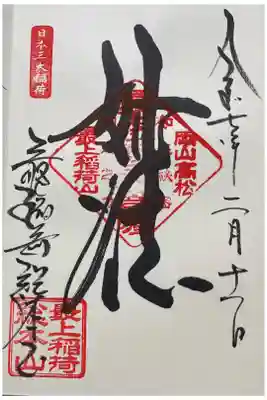 令和七年二月十一日
日本三大稲荷
岡山高松
妙法
最上稲荷山
最上稲荷総本山
最上稲荷
総本山